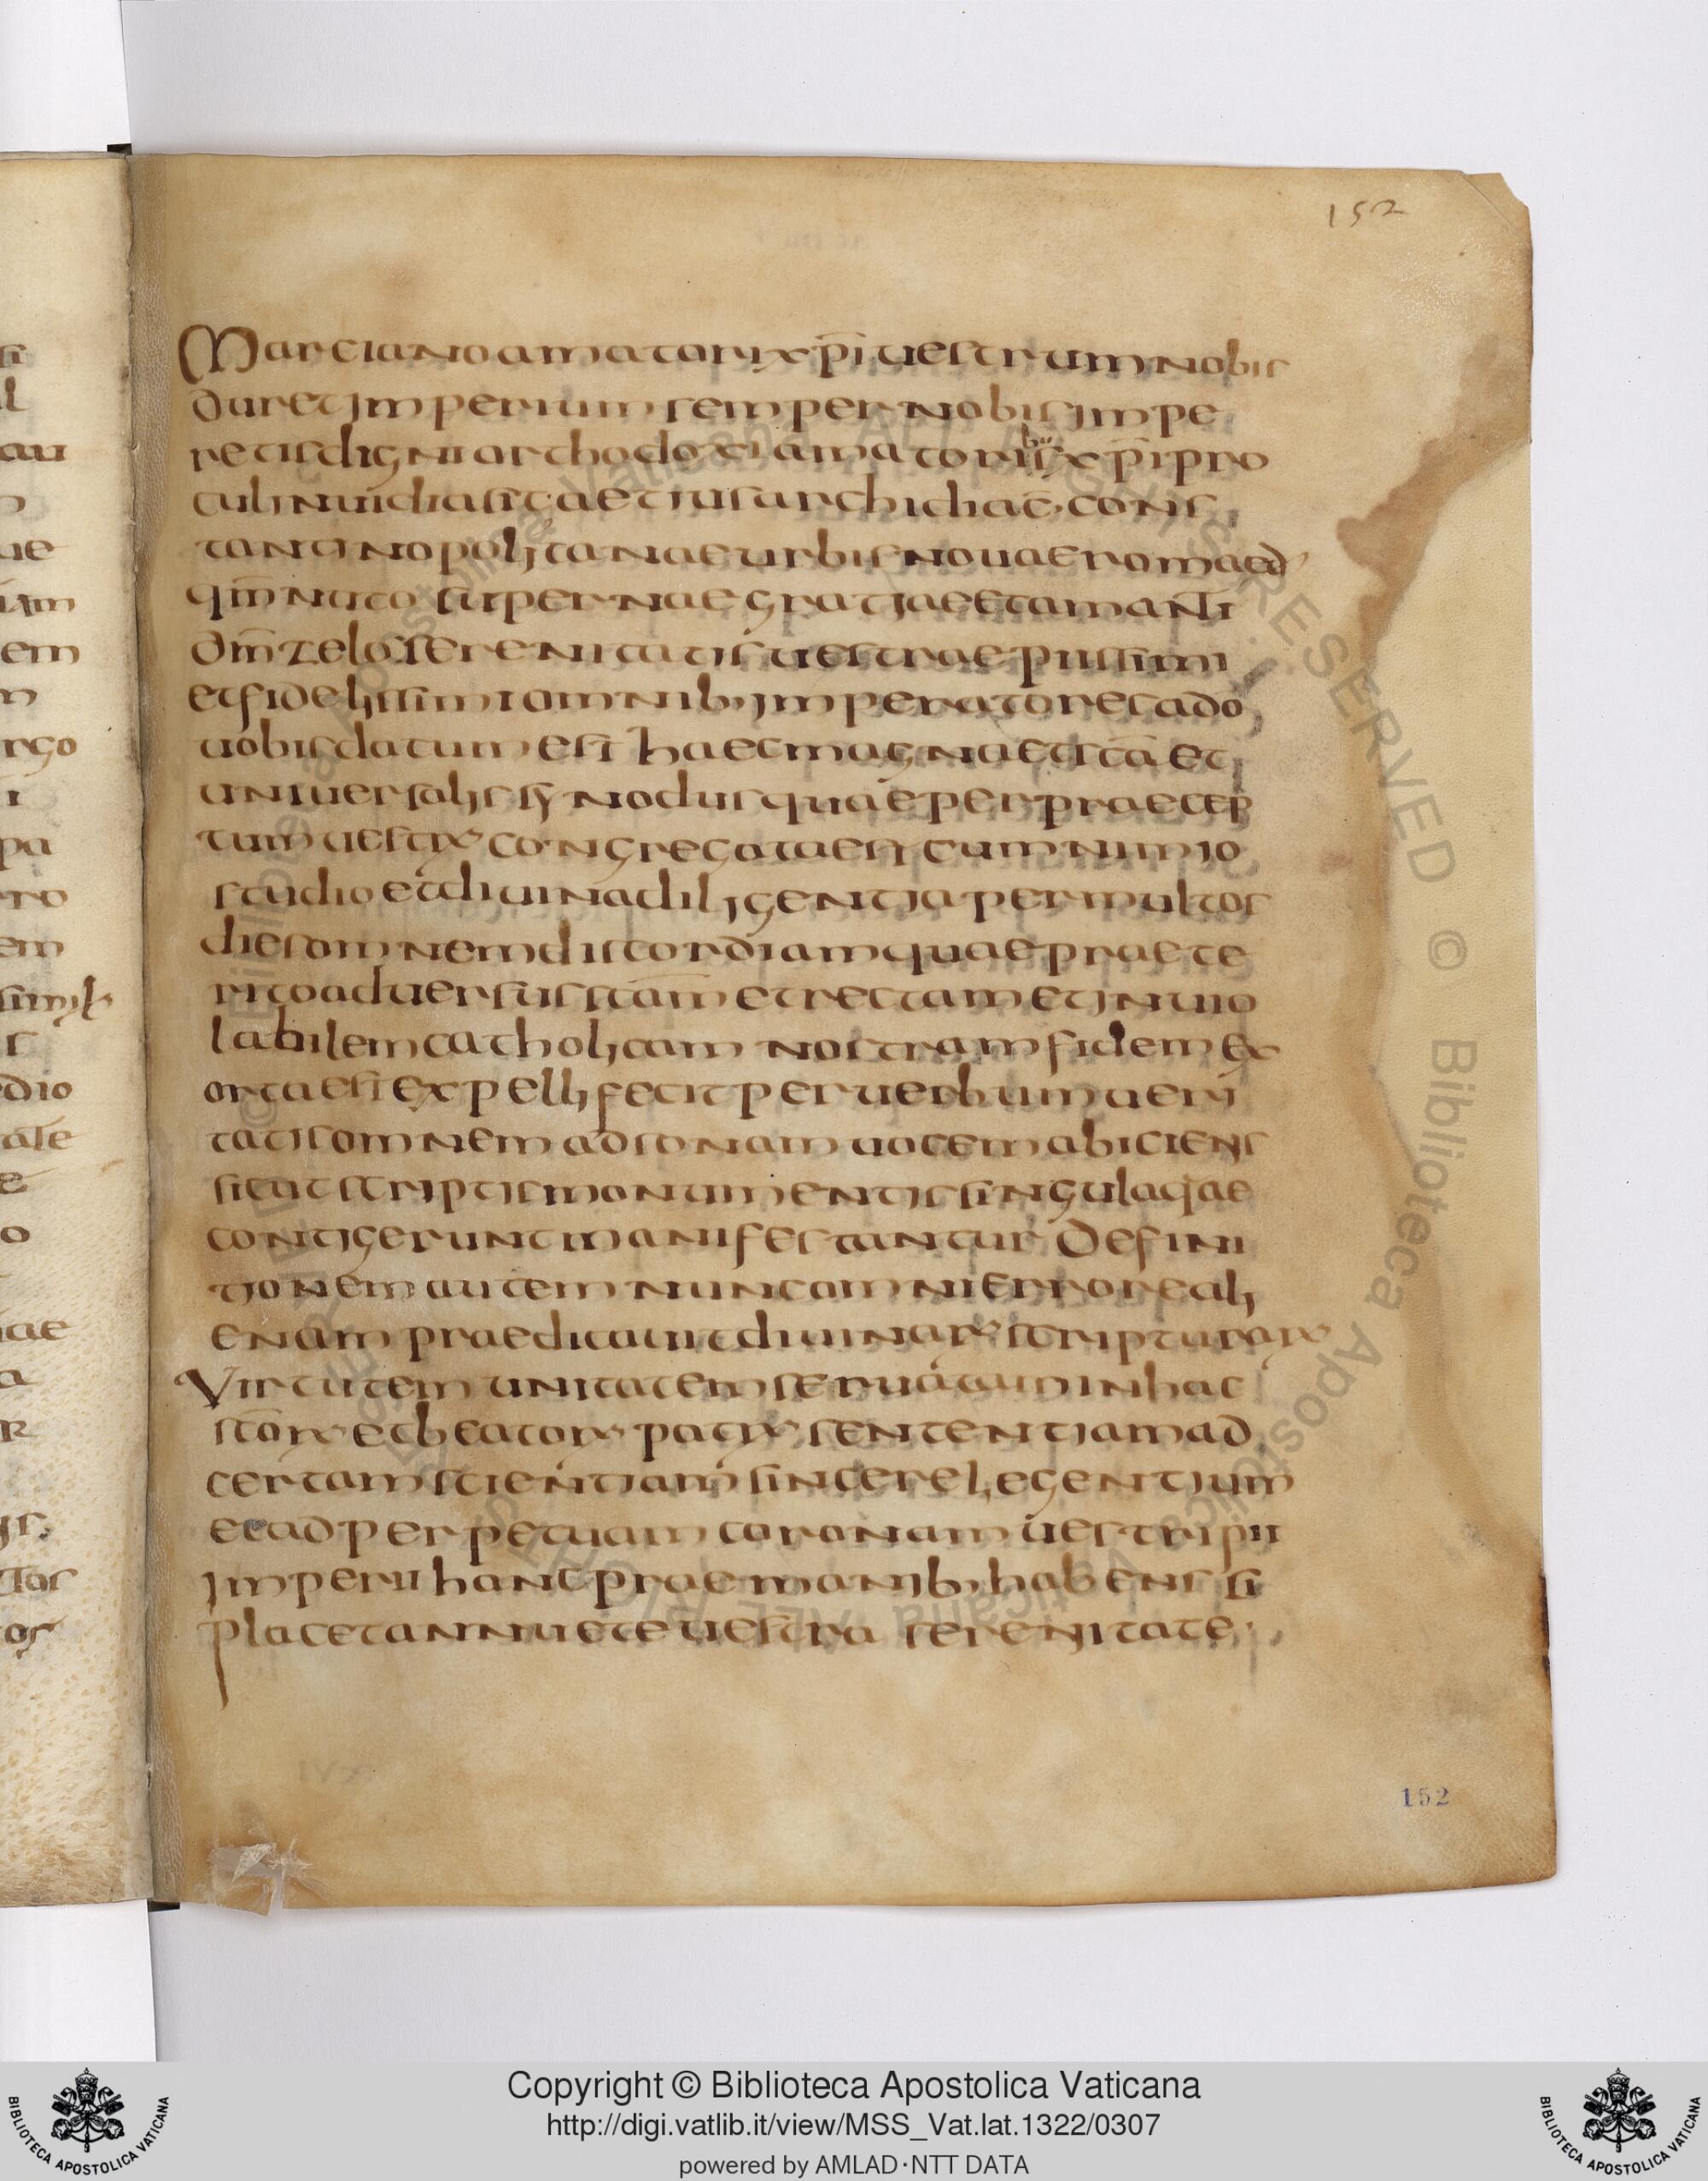 152
Marciano amatori xp̄i uestrum nobis
duret imperium semper nobis impe
retis digni orthodoxi amatoribus xp̄i pro
cul inuidia sit aetius archidiac̄ cons
tantinopolitanae urbis nouae romae d̄
qm̄ nuto supernae gratiae et amanti
dm̄ zelo serenitatis uestrae piissimi
et fidelissimi omnib; imperatores a dō
uobis datum est haec magna et scā et
uniuersalis synodus quae per praecep
tum uestrum congregata est cum nimio
studio et diuina diligentia per multos
dies omnem discordiam quae praete
rito aduersus scām et rectam et inuio
labilem catholicam nostram fidem ex
orta est expelli fecit per uerbum ueri
tatis omnem adsonam uocem abiciens
sicut scriptis monumentis singula quae
contigerunt manifestantur Defini
tionem autem nunc omni errore ali
enam praedicauit diuinarum scripturarum
Virtutem unitatem seruatum in hac
scōrum et beatorum patrum sententiam ad
certam scientiam sincere legentium
et ad perpetuam coronam uestri pii
imperii hanc prae manib; habens si
placet annuete uestra serenitate
152
Copyright © Biblioteca Apostolica Vaticana
http://digi.vatlib.it/view/MSS_Vat.lat.1322/0307
powered by AMLAD·NTT DATA
BIBLIOTECA APOSTOLICA VATICANA
BIBLIOTECA APOSTOLICA VATICANA